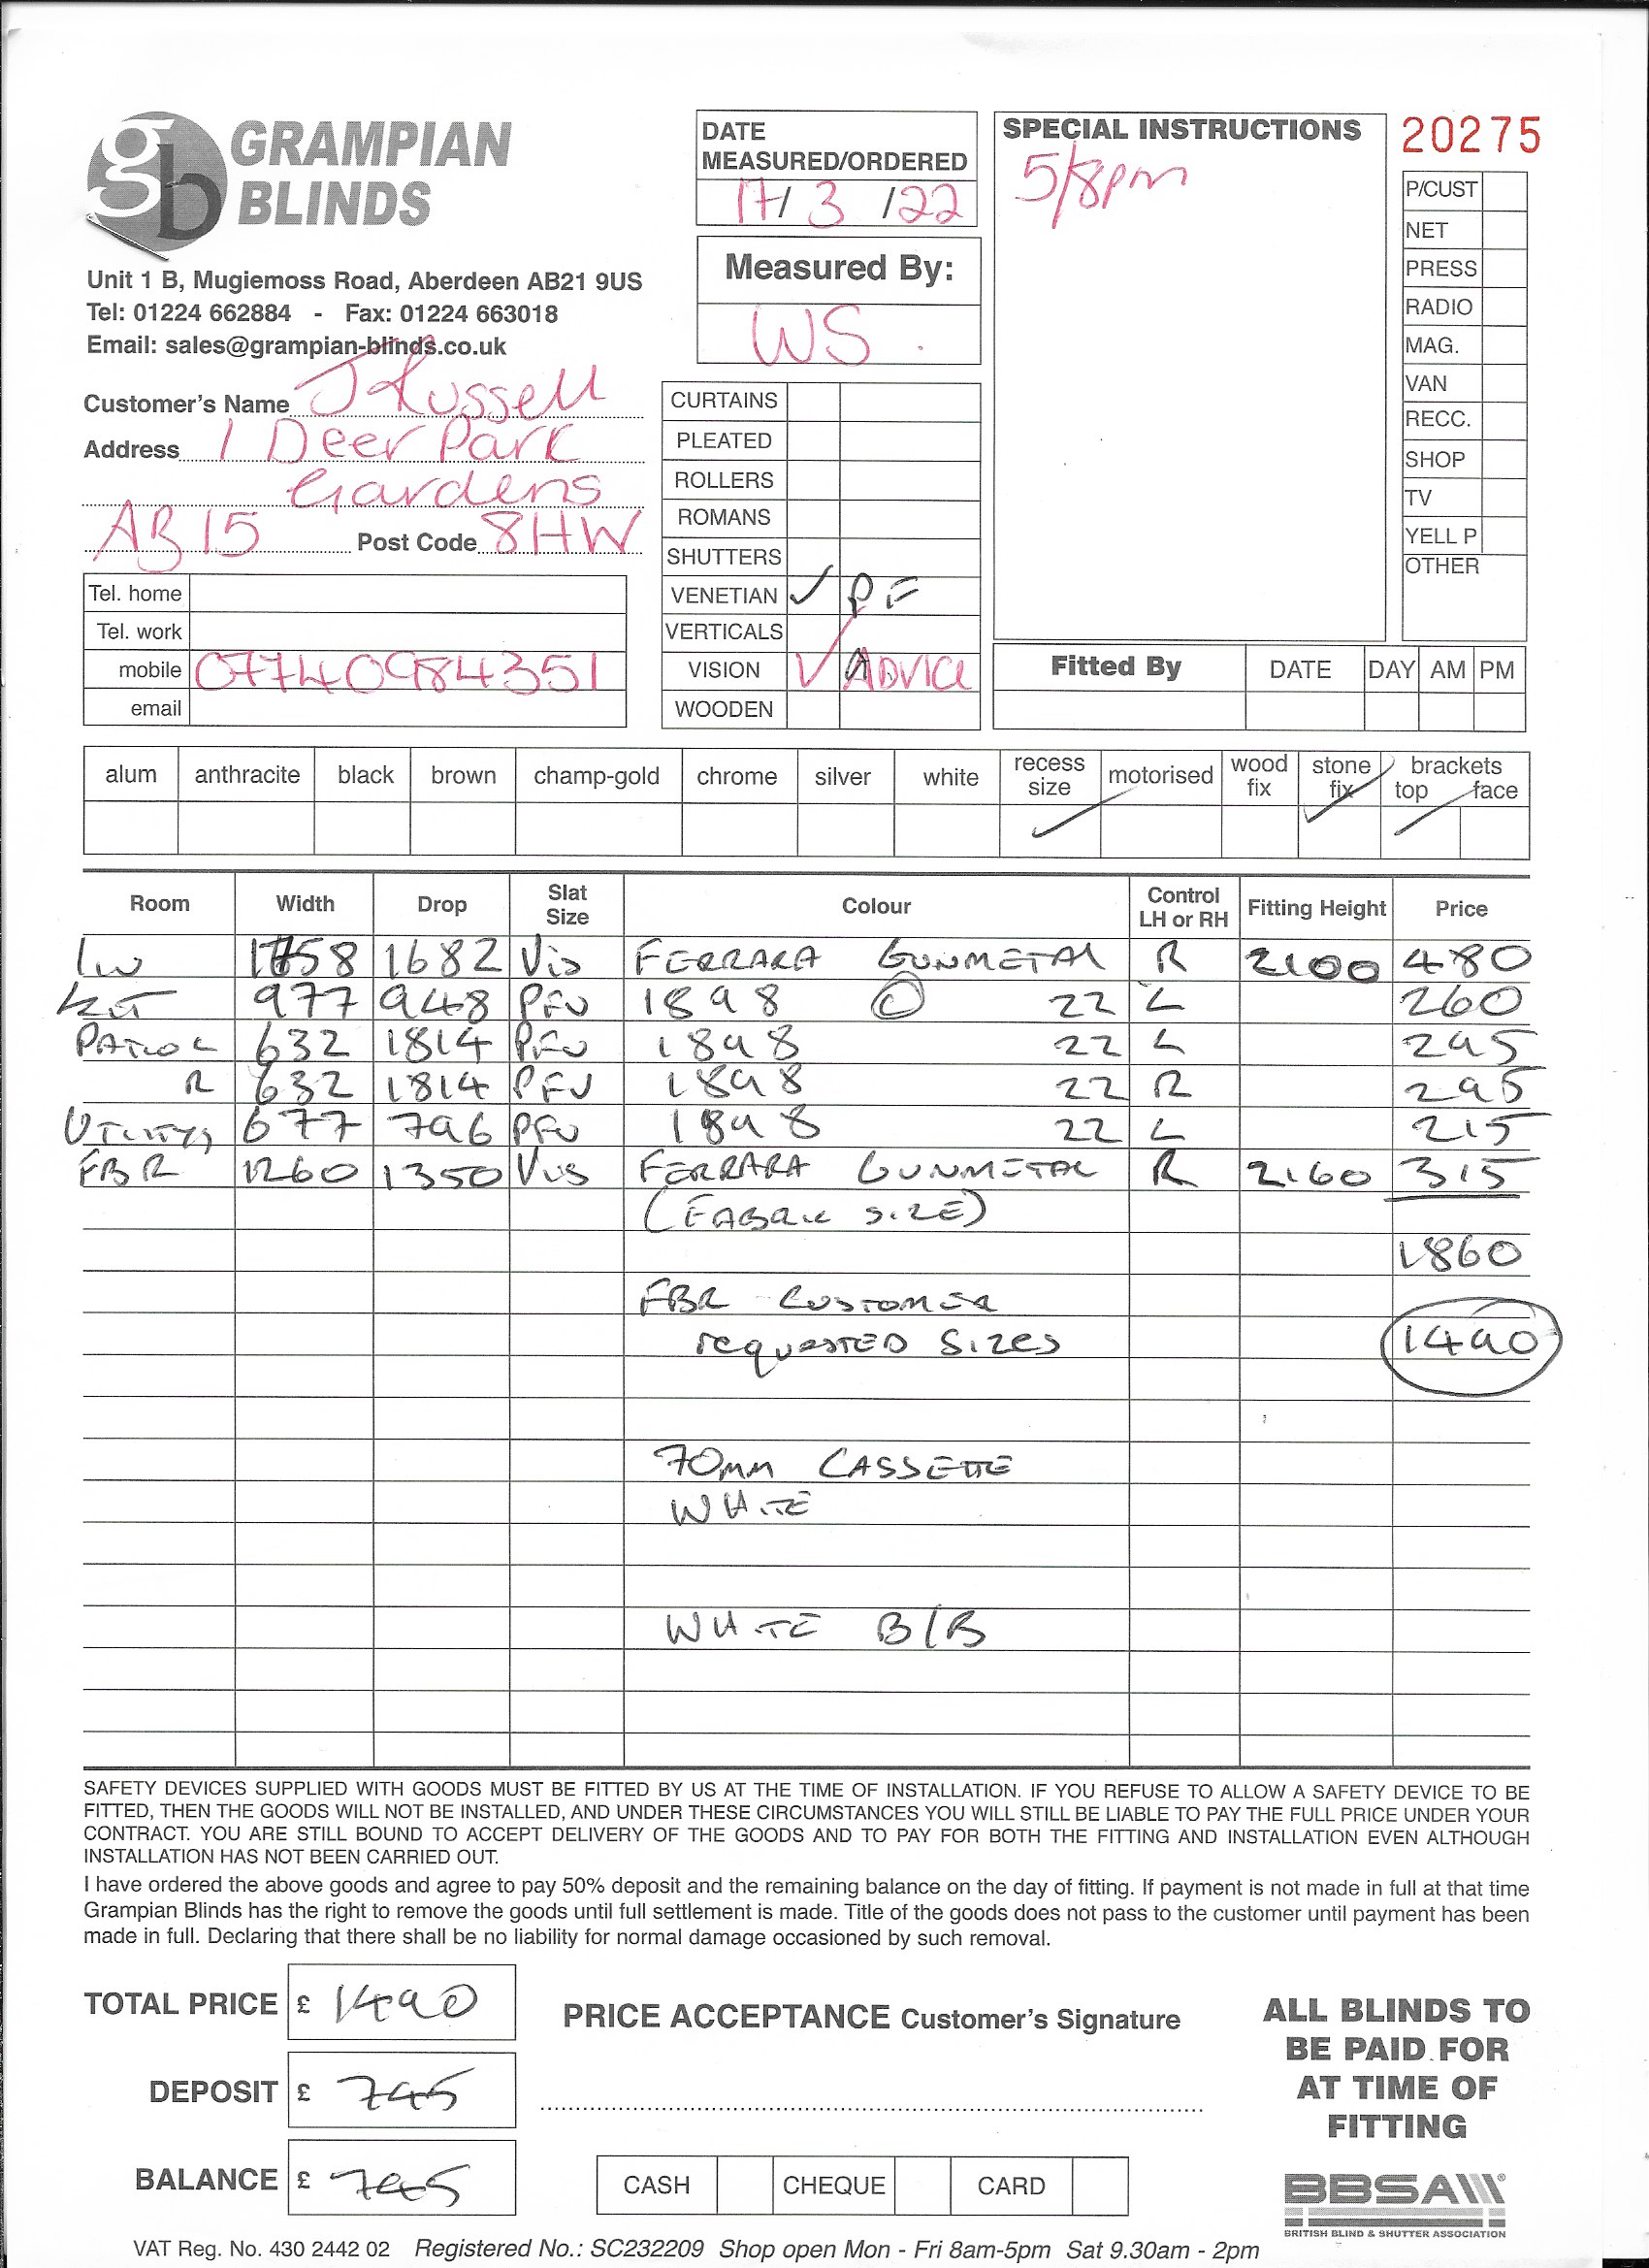 gb GRAMPIAN BLINDS
Unit 1 B, Mugiemoss Road, Aberdeen AB21 9US
Tel: 01224 662884 - Fax: 01224 663018
Email: sales@grampian-blinds.co.uk
Customer's Name J Russell
Address 1 Deer Park
Gardens
AB15 Post Code 8HW
Tel. home
Tel. work
mobile 07740984351
email
DATE
MEASURED/ORDERED
17/3/22
Measured By:
WS
CURTAINS
PLEATED
ROLLERS
ROMANS
SHUTTERS
VENETIAN ✓ PF
VERTICALS
VISION ✓ ADVICE
WOODEN
SPECIAL INSTRUCTIONS
5/8pm
20275
P/CUST
NET
PRESS
RADIO
MAG.
VAN
RECC.
SHOP
TV
YELL P
OTHER
Fitted By DATE DAY AM PM
alum anthracite black brown champ-gold chrome silver white recess size motorised wood fix stone fix brackets top face
Room Width Drop Slat Size Colour Control LH or RH Fitting Height Price
1758 1682 Vis FERRARA GUNMETAL R 2100 480
KIT 977 948 PFV 1898 © 22 L 260
PATIO L 632 1814 PFV 1898 22 L 295
R 632 1814 PFV 1898 22 R 295
UTILITY 677 796 PFV 1898 22 L 215
FBR 1260 1350 VIS FERRARA GUNMETAL R 2160 315
(FABRIC SIZE)
1860
FBR CUSTOMER
requESTED SIZES 1490
70mm CASSETTE
WHITE
WHITE B/B
SAFETY DEVICES SUPPLIED WITH GOODS MUST BE FITTED BY US AT THE TIME OF INSTALLATION. IF YOU REFUSE TO ALLOW A SAFETY DEVICE TO BE
FITTED, THEN THE GOODS WILL NOT BE INSTALLED, AND UNDER THESE CIRCUMSTANCES YOU WILL STILL BE LIABLE TO PAY THE FULL PRICE UNDER YOUR
CONTRACT. YOU ARE STILL BOUND TO ACCEPT DELIVERY OF THE GOODS AND TO PAY FOR BOTH THE FITTING AND INSTALLATION EVEN ALTHOUGH
INSTALLATION HAS NOT BEEN CARRIED OUT.
I have ordered the above goods and agree to pay 50% deposit and the remaining balance on the day of fitting. If payment is not made in full at that time
Grampian Blinds has the right to remove the goods until full settlement is made. Title of the goods does not pass to the customer until payment has been
made in full. Declaring that there shall be no liability for normal damage occasioned by such removal.
TOTAL PRICE £ 1490
DEPOSIT £ 745
BALANCE £ 745
PRICE ACCEPTANCE Customer's Signature
CASH CHEQUE CARD
ALL BLINDS TO
BE PAID FOR
AT TIME OF
FITTING
BBSA
BRITISH BLIND & SHUTTER ASSOCIATION
VAT Reg. No. 430 2442 02 Registered No.: SC232209 Shop open Mon - Fri 8am-5pm Sat 9.30am - 2pm